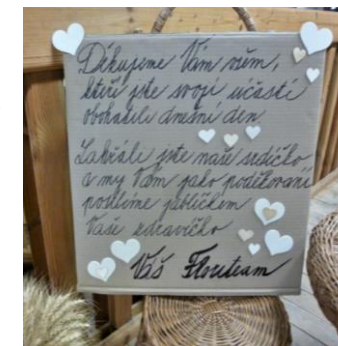 Děkujeme Vám všem,
kteří jste svojí účastí
obohatili dnešní den
Zahřáli jste naše srdíčko
a my Vám jako poděkování
posilníme jablíčkem
Vaše zdravíčko
Váš Floriteam